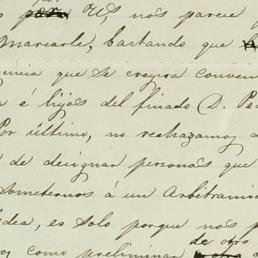 por U, nos parece
marcarle, bastando que
que se creyera conven
é hijos del finado (D. Pe
Por último, no rechazamos
de designar personas que
someternos á un Arbitrami
idea, es solo porque nos p
de otro
como preliminar